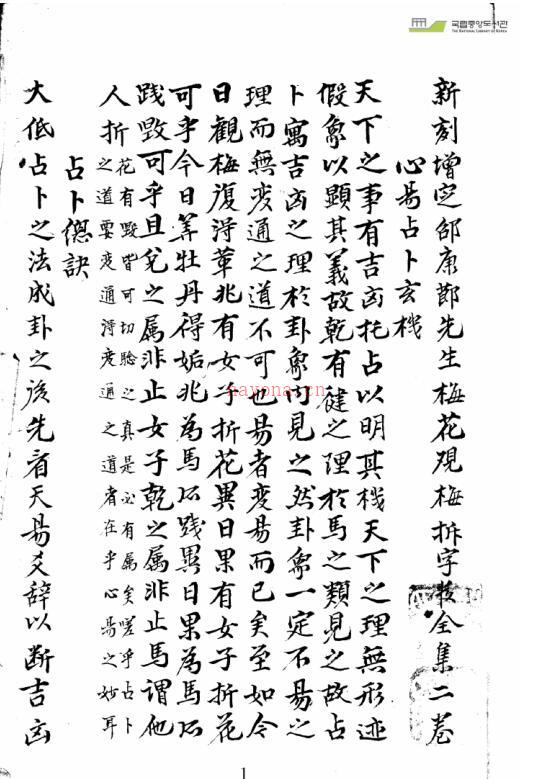 국립중앙도서관
THE NATIONAL LIBRARY OF KOREA
新刻增定邵康節先生梅花观梅拆字数全集二卷
心易占卜玄機
天下之事有吉凶托占以明其機天下之理無形迹
假象以顕其義故乾有健之理於馬之類見之故占
卜寓吉凶之理於卦象内見之然卦象一定不易之
理而無変通之道不可也易者変易而已矣至如今
日觀梅復得革兆有女子折花異日果有女子折花
可乎今日筭牡丹得姤兆為馬所践異日果為馬所
践毀可乎且兌之属非止女子乾之属非止馬謂他
人折花有毀皆可切驗之真是必有属矣嗟乎占卜
之道要変通得変通之道者在乎心易之妙耳
占卜偬訣
大低占卜之法成卦之後先看天易爻辞以断吉凶
nayona.cn
1